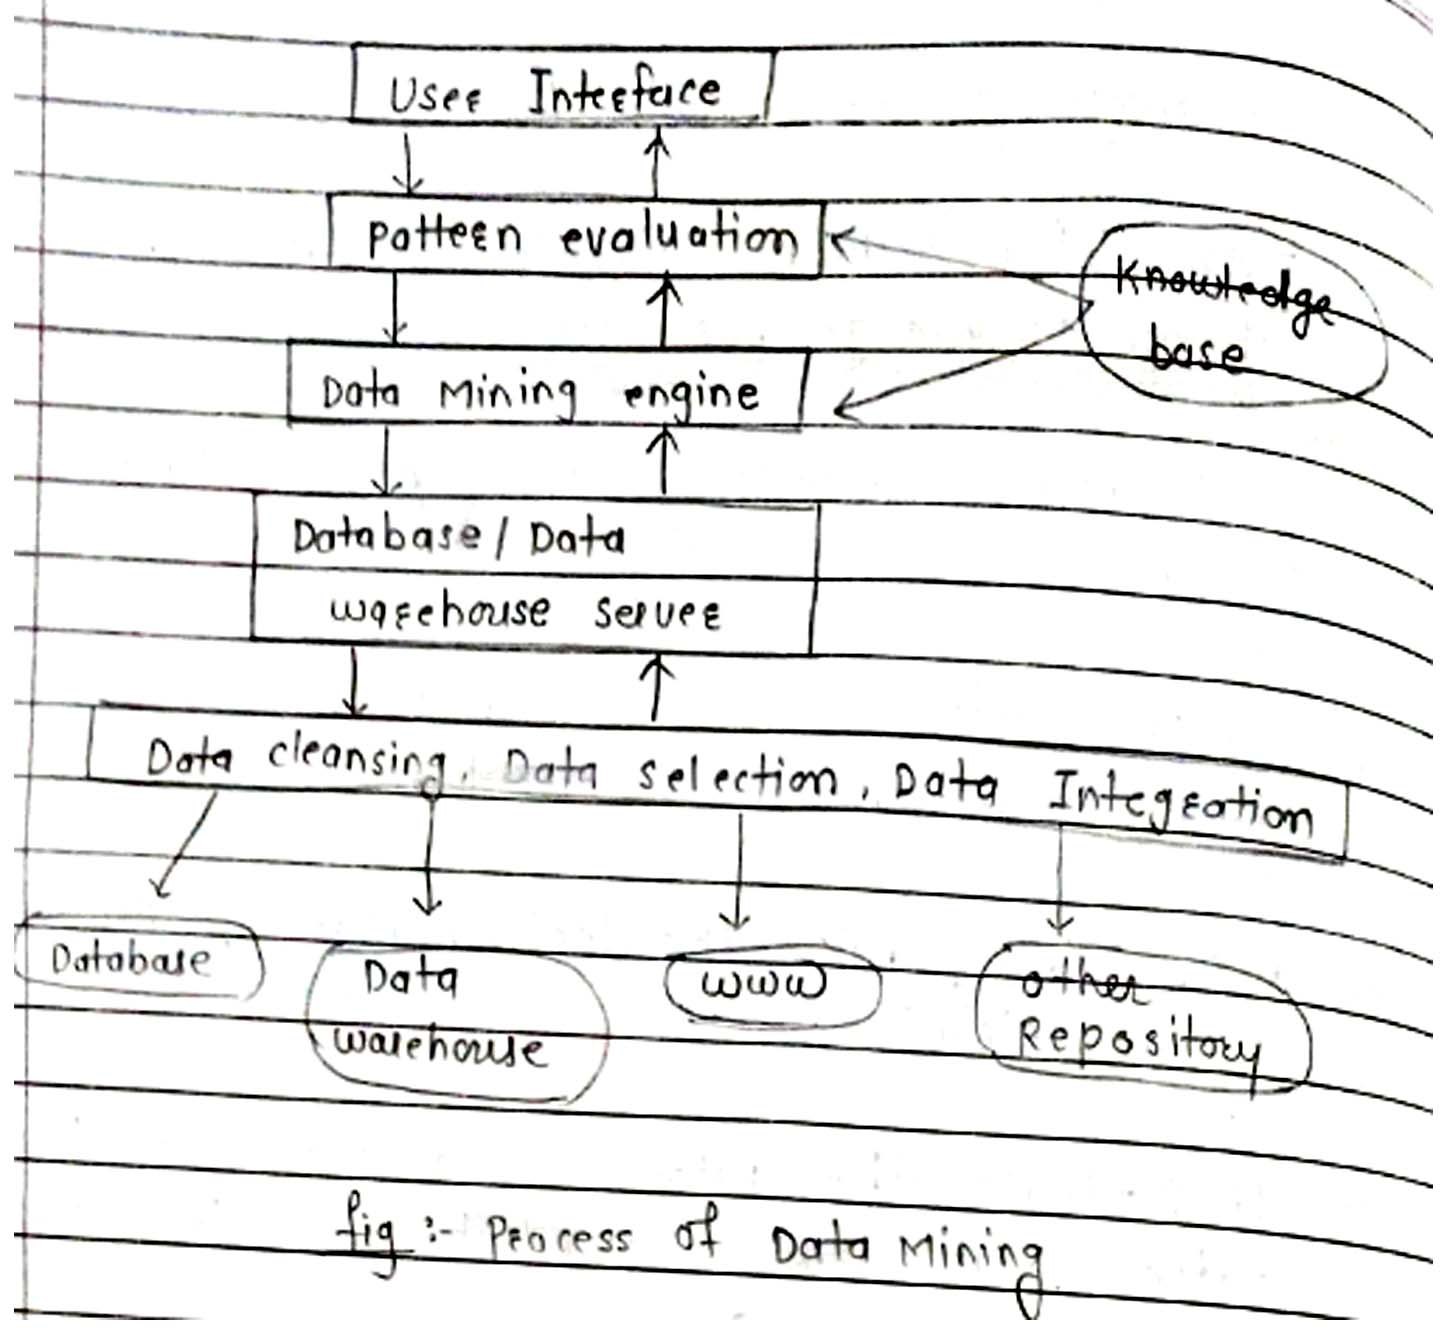 User Interface
Pattern evaluation
Knowledge
base
Data Mining engine
Database / Data
warehouse server
Data cleansing, Data selection, Data Integration
Database
Data
warehouse
www
other
Repository
fig :- Process of Data Mining